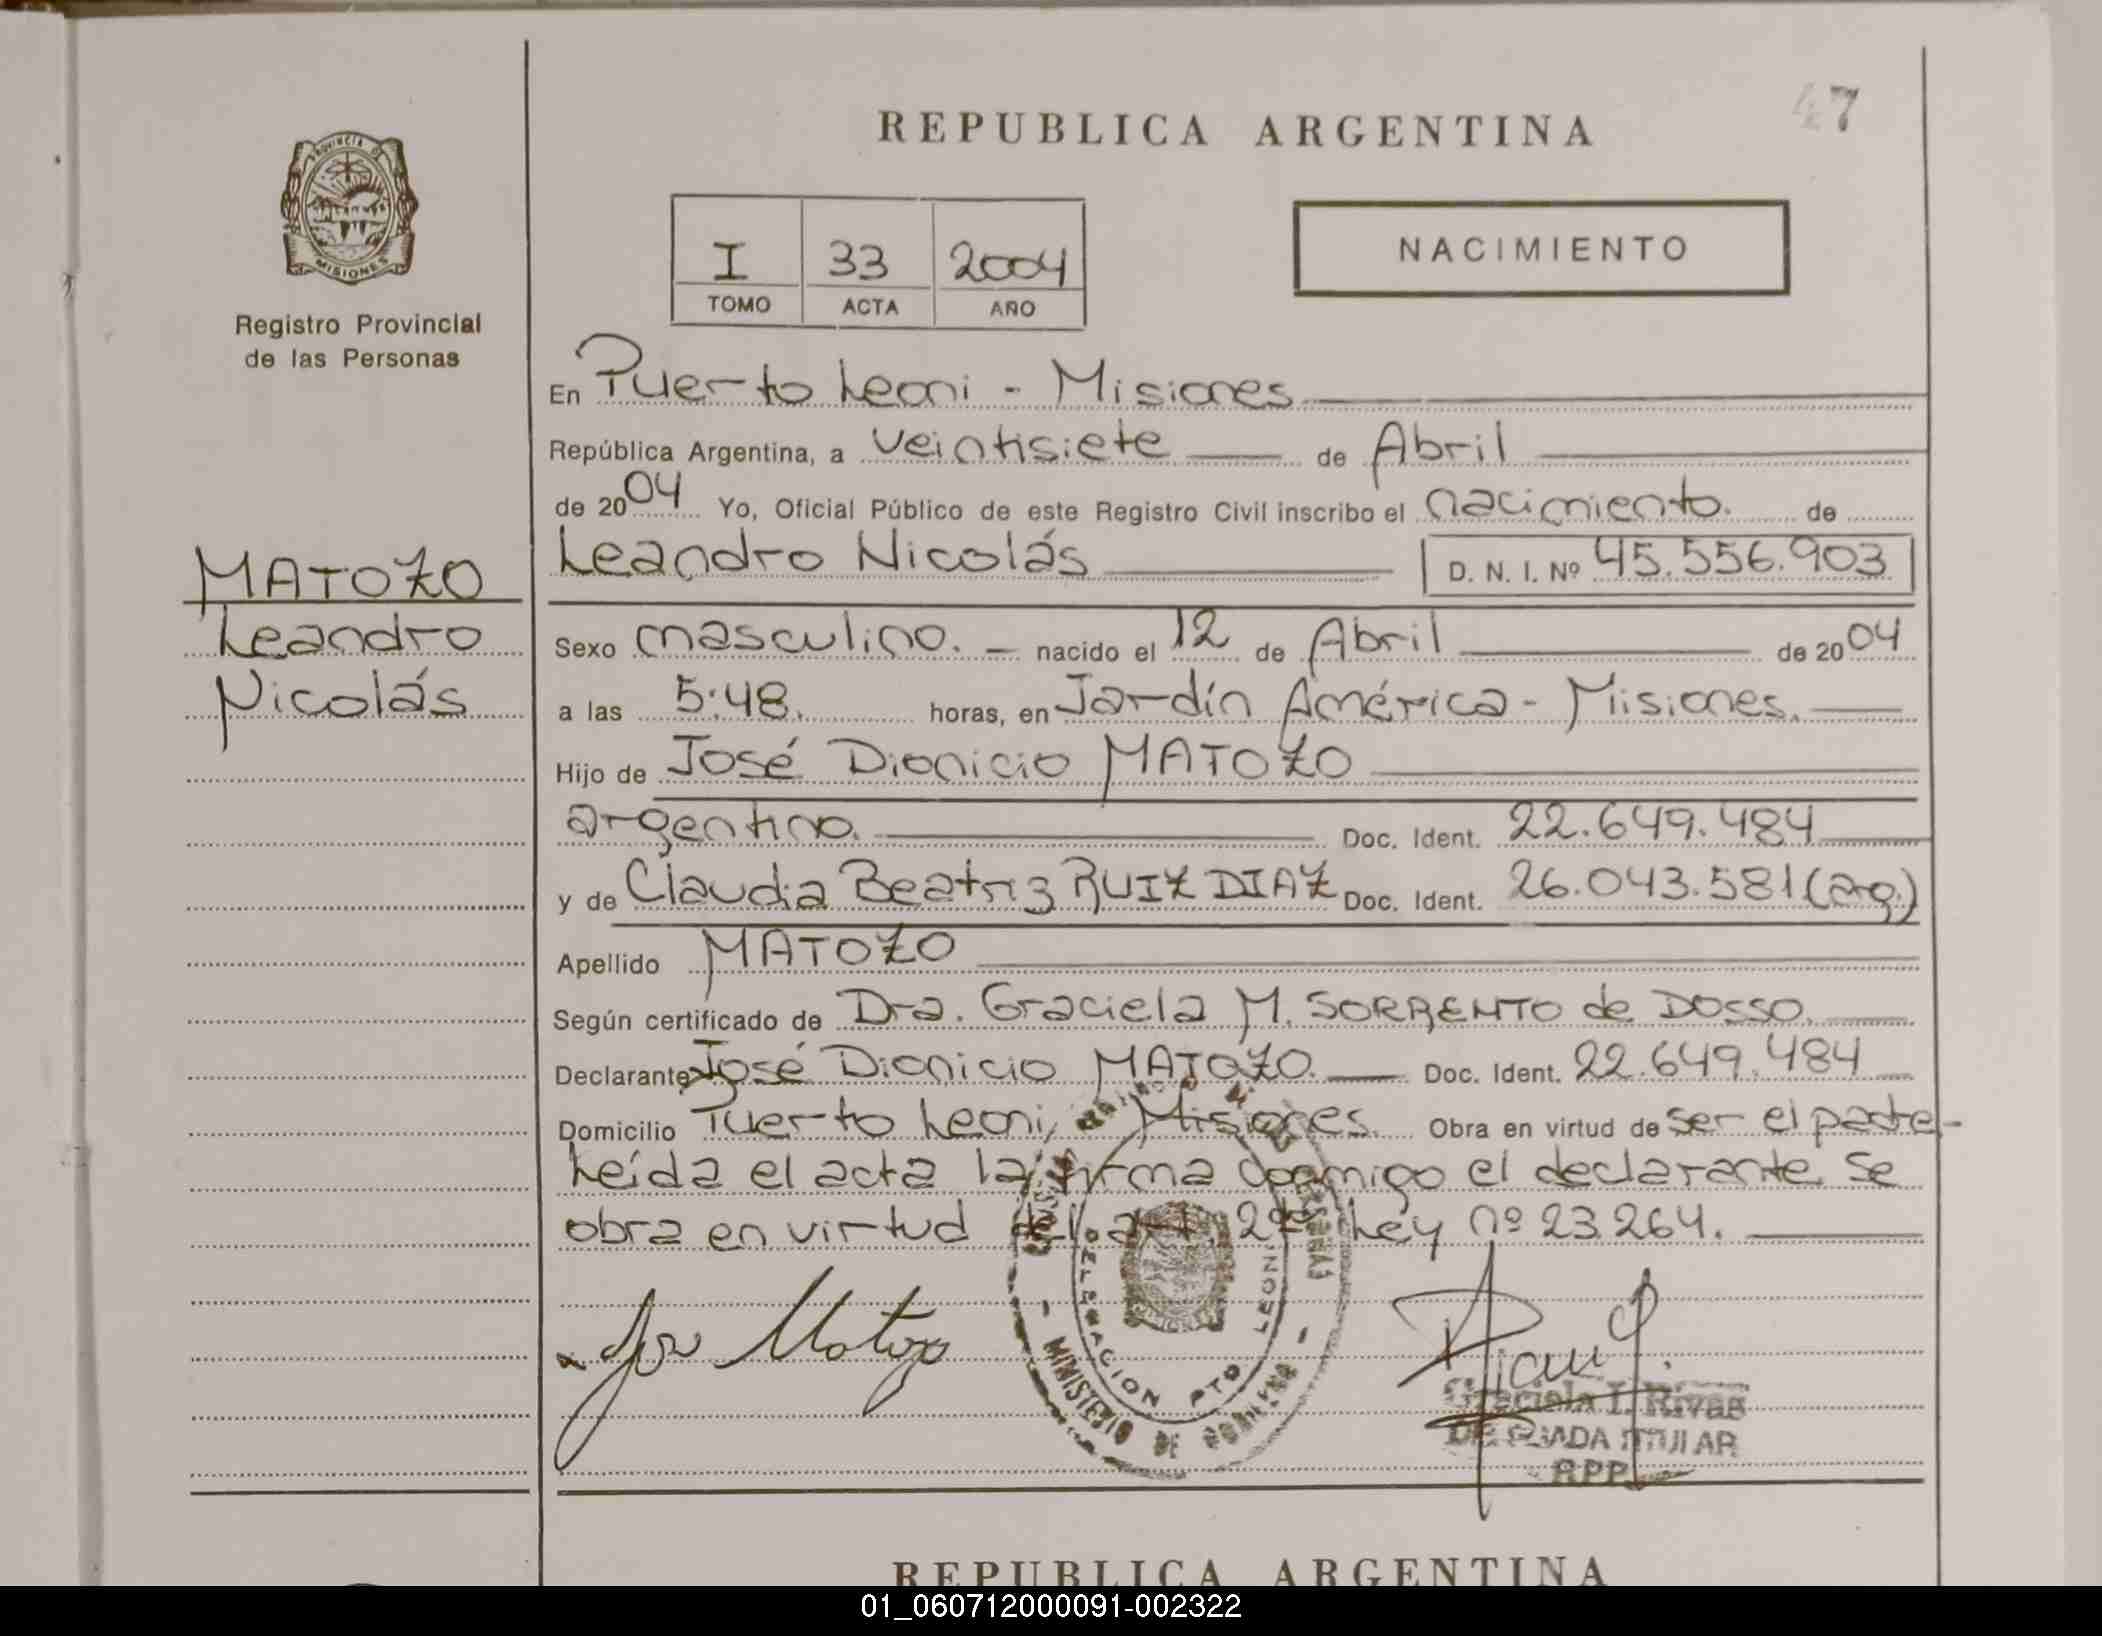 47
REPUBLICA ARGENTINA
PROVINCIA DE
MISIONES
Registro Provincial
de las Personas
I 33 2004
TOMO ACTA AÑO
NACIMIENTO
En Puerto Leoni - Misiones
República Argentina, a veintisiete de Abril
de 2004 Yo, Oficial Público de este Registro Civil inscribo el nacimiento. de
Leandro Nicolás D. N. I. Nº 45.556.903
MATOZO
Leandro
Nicolás
Sexo masculino. - nacido el 12 de Abril de 2004
a las 5:48. horas, en Jardín América - Misiones.
Hijo de José Dionicio MATOZO
argentino. Doc. Ident. 22.649.484
y de Claudia Beatriz RUIZ DIAZ Doc. Ident. 26.043.581 (arg.)
Apellido MATOZO
Según certificado de Dra. Graciela M. SORRENTO de DOSSO.
Declarante José Dionicio MATOZO. Doc. Ident. 22.649.484
Domicilio Puerto Leoni, Misiones. Obra en virtud de ser el padre-
Leída el acta la firma conmigo el declarante. Se
obra en virtud del art. 2do Ley nº 23.264.
José Matozo
MINISTERIO DE GOBIERNO
DELEGACION PTO LEONI
Graciela I. Rivas
DELEGADA TITULAR
RPP
REPUBLICA ARGENTINA
01_060712000091-002322